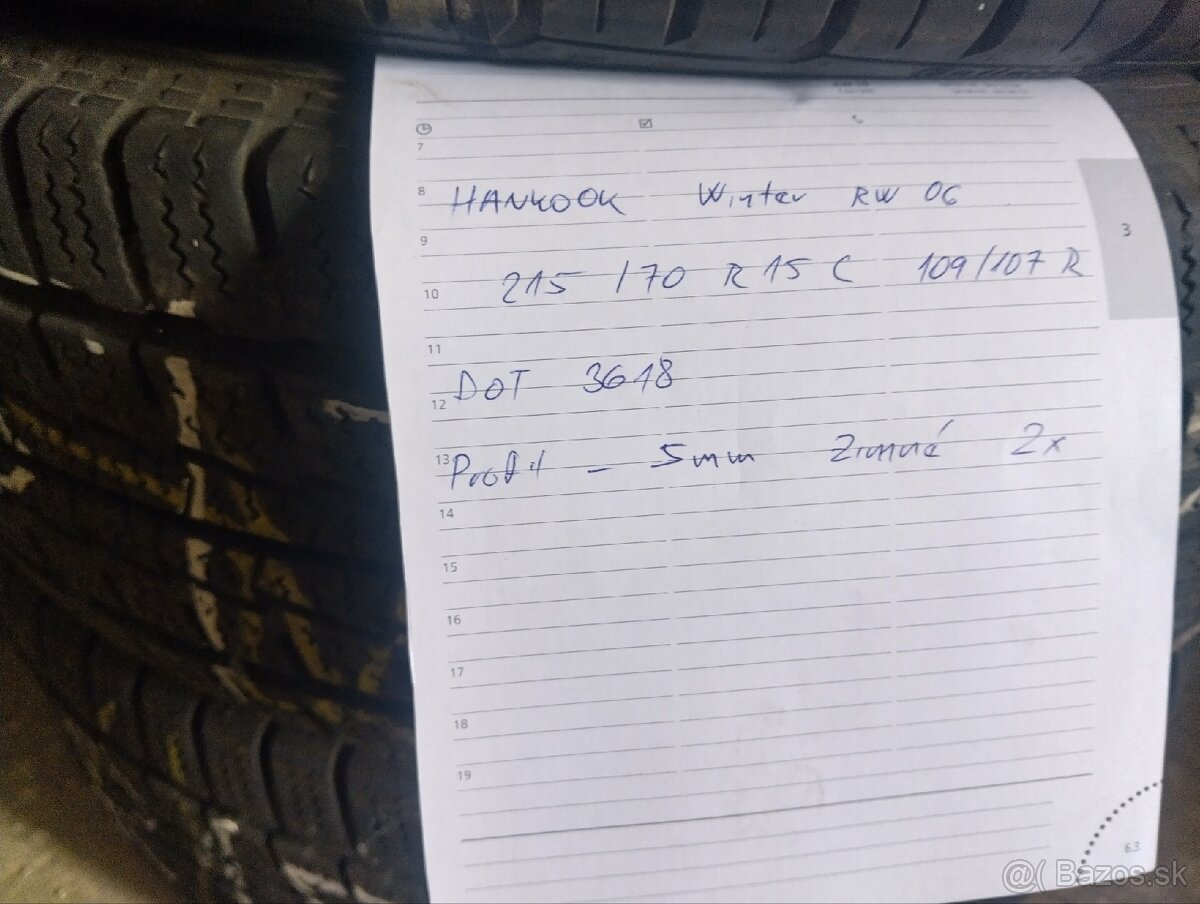 7
8 HANKOOK Winter RW 06
3
9
215 /70 R 15 C 109/107 R
10
11
DOT 3618
12
13 Profil - 5mm Zimné 2x
14
15
16
17
18
19
6.3
@( Bazos.sk